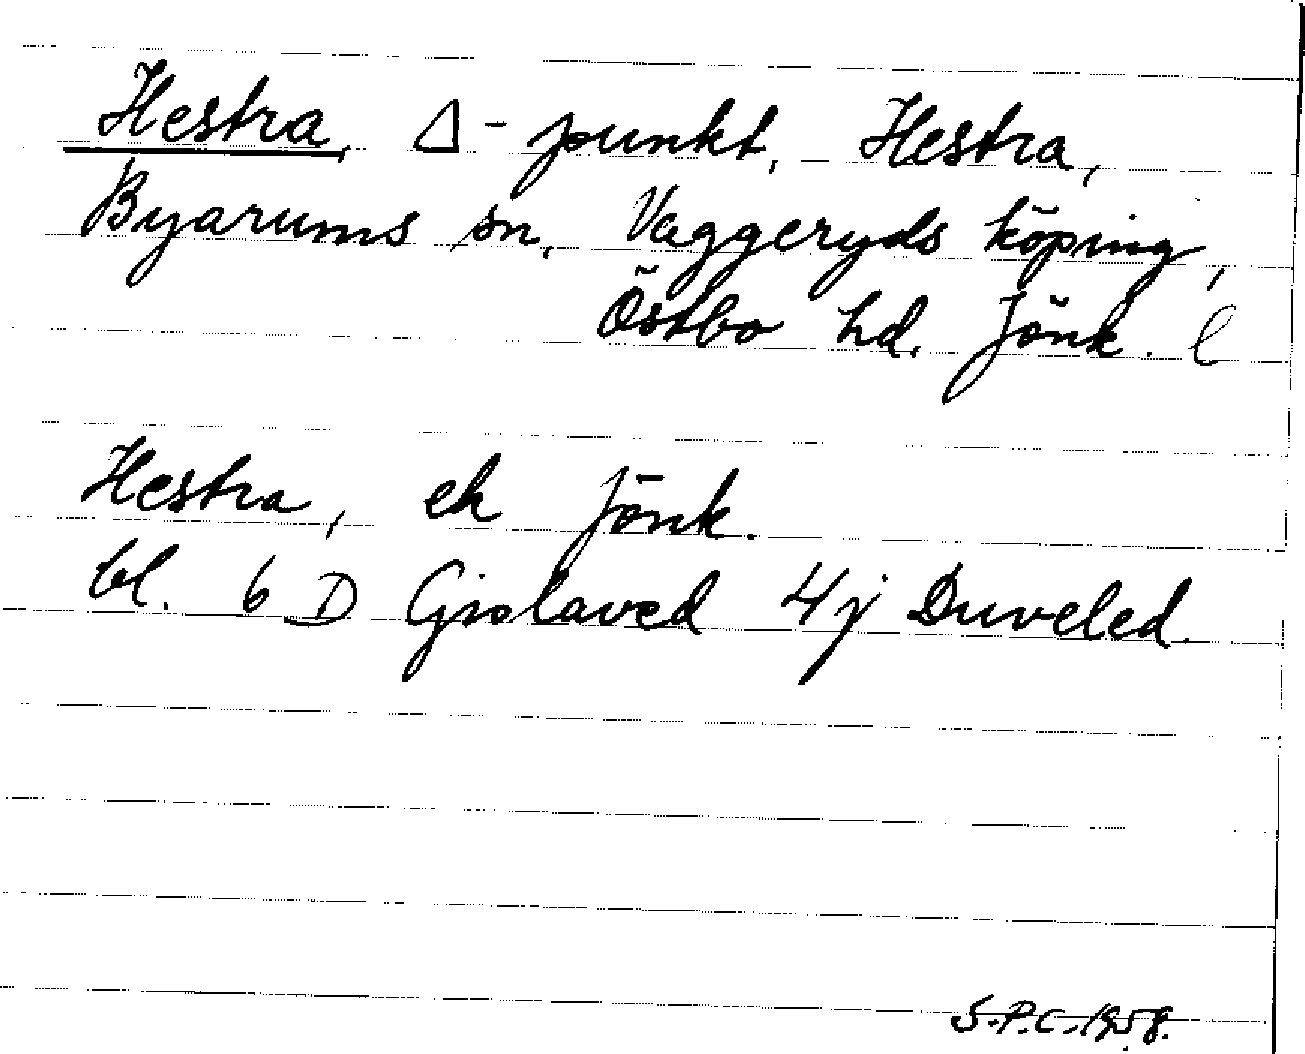 Hestra, Δ-punkt, Hestra,
Byarums sn, Vaggeryds köping,
Östbo hd. Jönk. l
Hestra, ek Jönk.
bl. 6 D Gislaved 4j Duveled.
S.P.C. 1958.